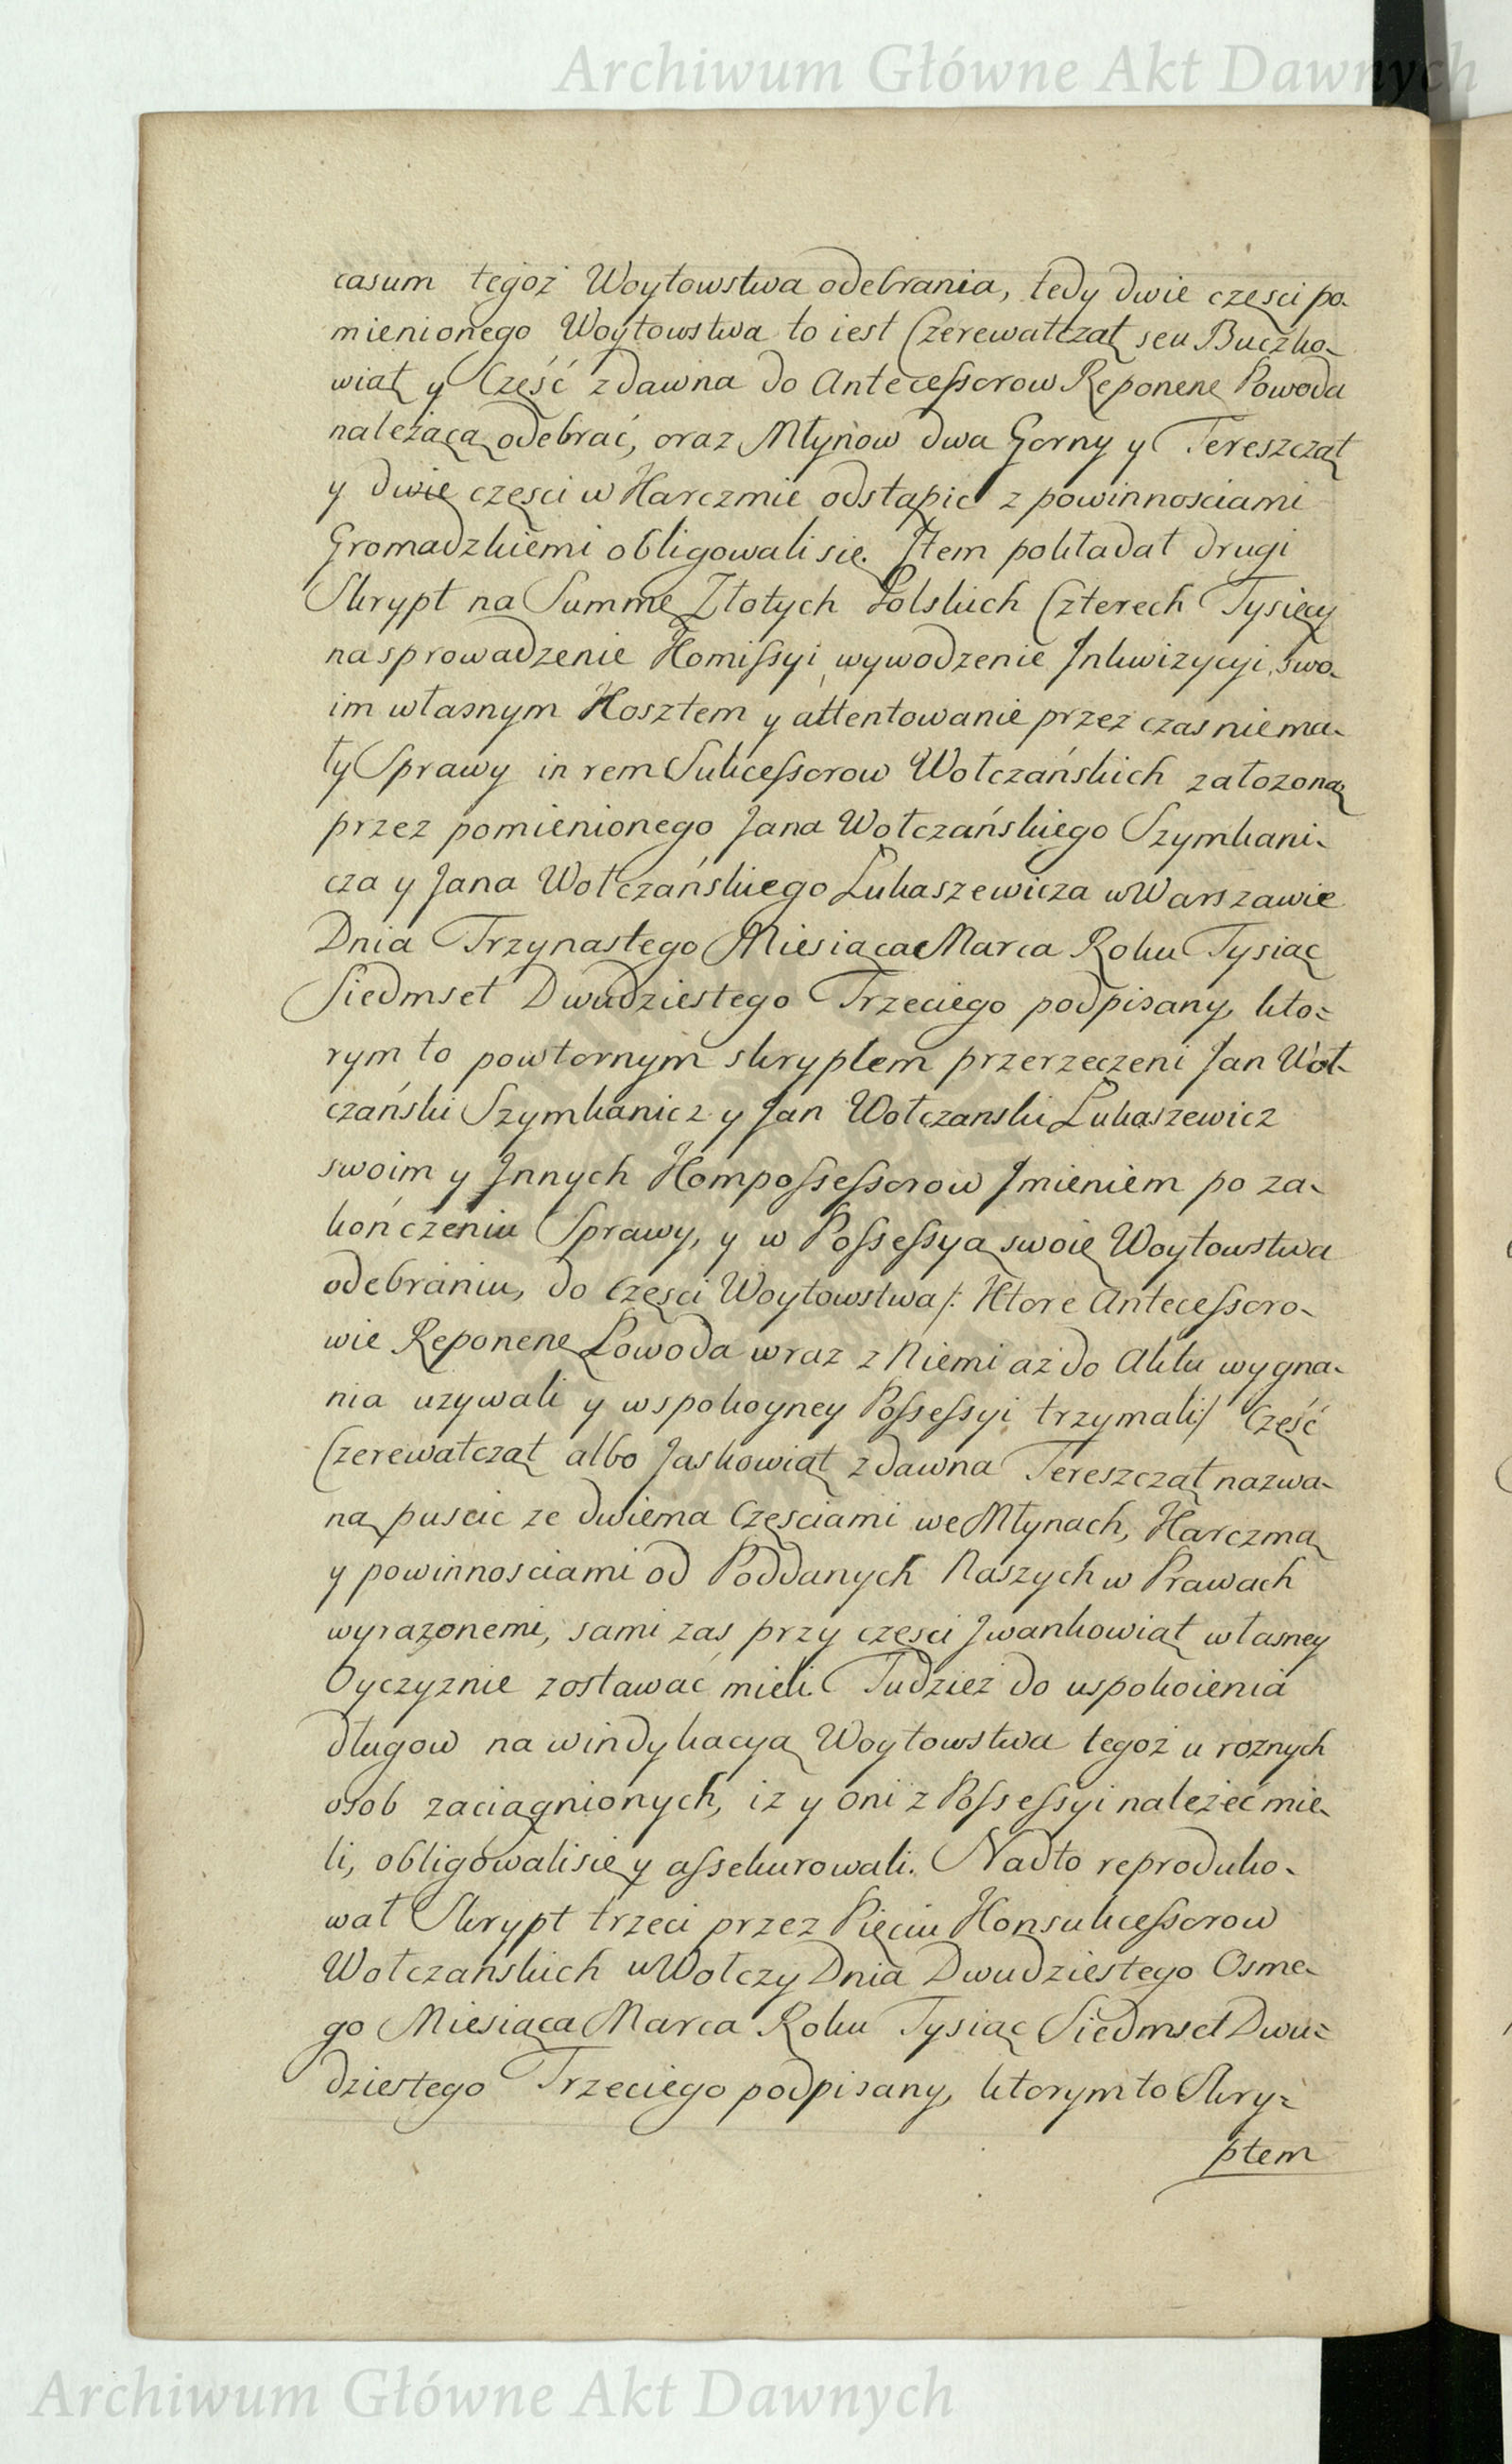 Archiwum Główne Akt Dawnych
casum tegoż Woytowstwa odebrania, tedy dwie częsci po-
mienionego Woytowstwa to iest Czerewatcząt seu Buczko-
wiąt y Część zdawna do Antecessorow Reponenę Powoda
należącą odebrać, oraz Młynow dwa Gorny y Tereszcząt
y dwię częsci w Karczmie odstąpic z powinnosciami
Gromadzkiemi obligowali się. Item pokładał drugi
Skrypt na Summę Złotych Polskich Czterech Tysięcy
na sprowadzenie Komissyi, wywodzenie Inkwizycyi, swo-
im własnym Kosztem y attentowanie przez czas niema-
ły Sprawy in rem Sukcessorow Wołczańskich założoną
przez pomienionego Jana Wołczańskiego Szymkani-
cza y Jana Wołczańskiego Łukaszewicza w Warszawie
Dnia Trzynastego Miesiąca Marca Roku Tysiąc
Siedmset Dwudziestego Trzeciego podpisany, kto-
rym to powtornym skryptem przerzeczeni Jan Woł-
czański Szymkanicz y Jan Wołczanski Łukaszewicz
swoim y Innych Kompossessorow Imieniem po za-
kończeniu Sprawy, y w Possessyą swoię Woytowstwa
odebraniu, do Częsci Woytowstwa /: Ktore Antecessoro-
wie Reponenę Powoda wraz z Niemi aż do Aktu wygna-
nia uzywali y w spokoyney Possessyi trzymali/ Część
Czerewatcząt albo Jaskowiąt zdawna Tereszcząt nazwa-
ną puscic ze dwiema Częsciami we Młynach, Karczmą
y powinnosciami od Poddanych Naszych w Prawach
wyrazonemi, sami zas przy częsci Iwankowiąt własney
Oyczyznie zostawać mieli. Tudzież do uspokoienia
długow na windykacyą Woytowstwa tegoż u roznych
osob zaciągnionych, iz y oni z Possessyi należeć mie-
li, obligowali się y assekurowali. Nadto reproduko-
wał Skrypt trzeci przez Pięciu Konsukcessorow
Wołczańskich w Wołczy Dnia Dwudziestego Osme-
go Miesiąca Marca Roku Tysiąc Siedmset Dwu-
dziestego Trzeciego podpisany, ktorym to Skry-
ptem
Archiwum Główne Akt Dawnych